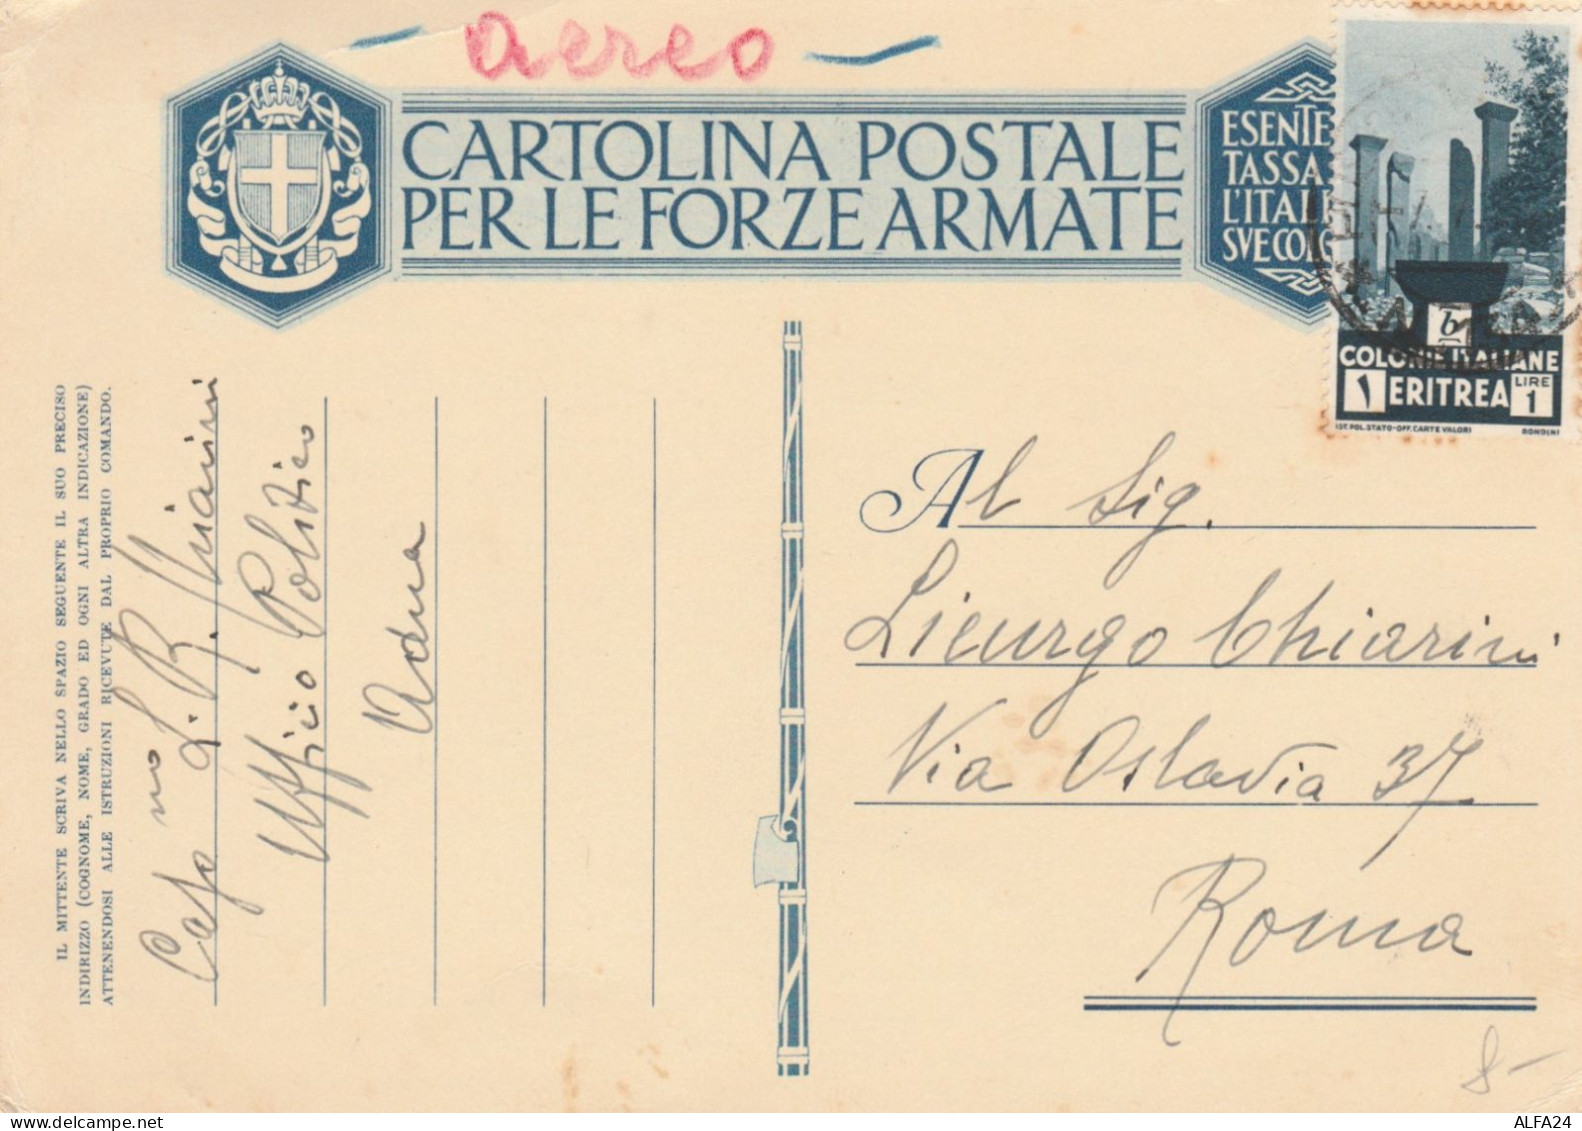 Aereo
CARTOLINA POSTALE
PER LE FORZE ARMATE
ESENTE
TASSA
L'ITAL
SVE COL
b
COLONIE ITALIANE
١ ERITREA LIRE 1
IST. POL. STATO-OFF. CARTE VALORI BONDINI
IL MITTENTE SCRIVA NELLO SPAZIO SEGUENTE IL SUO PRECISO
INDIRIZZO (COGNOME, NOME, GRADO ED OGNI ALTRA INDICAZIONE)
ATTENENDOSI ALLE ISTRUZIONI RICEVUTE DAL PROPRIO COMANDO.
Ufficio Politico
Adua
Al Sig.
Licurgo Chiarini
Via Oslavia 37
Roma
8-
ALFA24